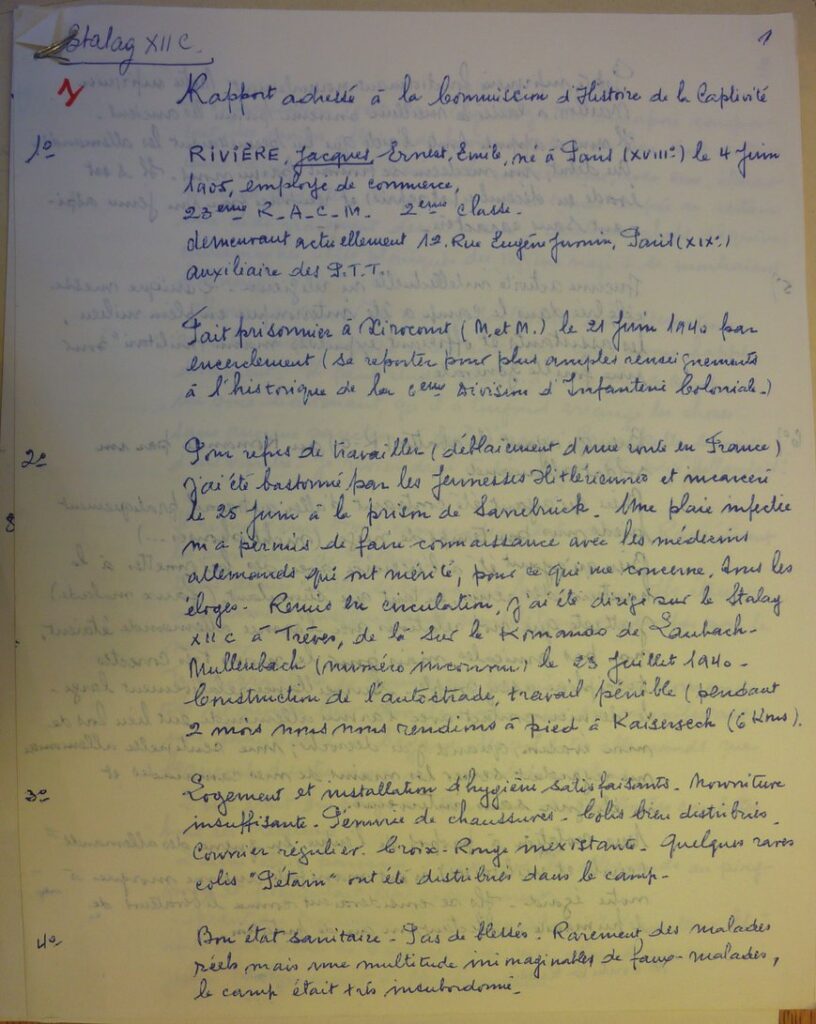 Stalag XII C. 1
1
Rapport adressé à la Commission d'Histoire de la Captivité
1º RIVIÈRE, Jacques, Ernest, Emile, né à Paris (XVIIIº) le 4 Juin
1905, employé de commerce,
23eme R.A.C.M. 2eme classe.
demeurant actuellement 12. Rue Eugène Jumin, Paris (XIXº)
auxiliaire des P.T.T.
Fait prisonnier à Xirocourt (M. et M.) le 21 Juin 1940 par
encerclement (se reporter pour plus amples renseignements
à l'historique de la 6eme Division d'Infanterie Coloniale.)
2º Pour refus de travailler (déblaiement d'une route en France)
j'ai été bastonné par les Jeunesses Hitlériennes et incarcéré
le 25 Juin à la prison de Sarrebrück. Une plaie infectée
m'a permis de faire connaissance avec les médecins
allemands qui ont mérité, pour ce qui me concerne, tous les
éloges. Remis en circulation, j'ai été dirigé sur le Stalag
XII C à Trèves, de là sur le Komando de Laubach-
Mullenbach (numéro inconnu) le 23 Juillet 1940.
Construction de l'autostrade, travail pénible (pendant
2 mois nous nous rendions à pied à Kaisersech (6 Kms).
3º Logement et installation d'hygiène satisfaisants. Nourriture
insuffisante. Pénurie de chaussures. Colis bien distribués.
Courrier régulier. Croix-Rouge inexistante. Quelques rares
colis "Pétain" ont été distribués dans le camp.
4º Bon état sanitaire. Pas de blessés. Rarement, des malades
réels mais une multitude inimaginables de faux-malades,
le camp était très insubordonné.